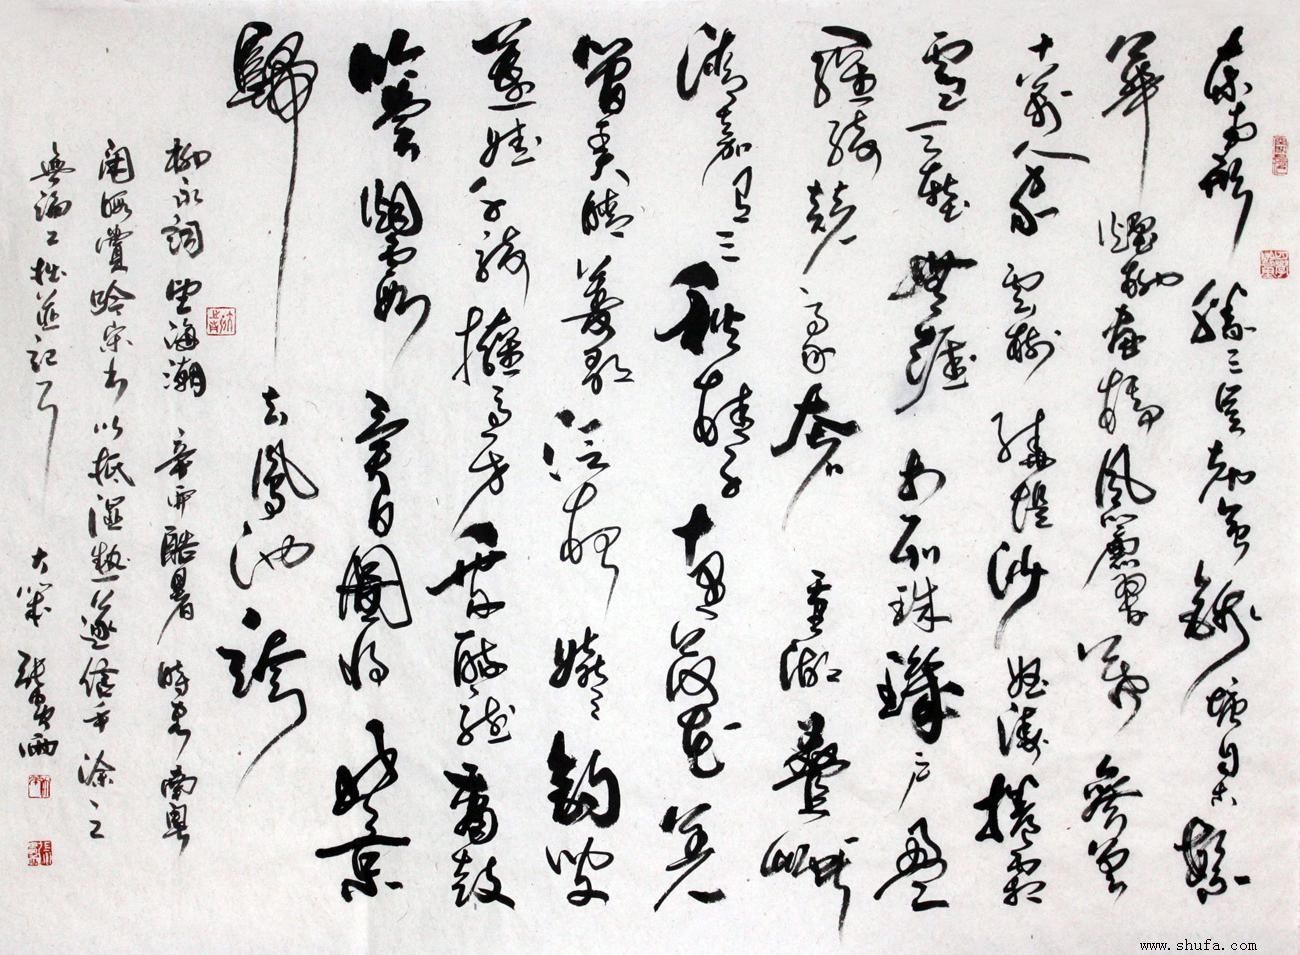 東南形勝三吳都會錢塘自古繁
華煙柳畫橋風簾翠幕參差
十萬人家雲樹繞堤沙怒濤捲霜
雪天塹無涯市列珠璣戶盈
羅綺競豪奢重湖疊巘
清嘉有三秋桂子十里荷花羌
管弄晴菱歌泛夜嬉嬉釣叟
蓮娃千騎擁高牙乘醉聽簫鼓
吟賞煙霞異日圖將好景
歸去鳳池誇
柳永詞望海潮 酷暑時客南粵
閑暇賞吟宋 以抵濕熱遂信手塗之
無論工拙並記耳 張 雨
www.shufa.com